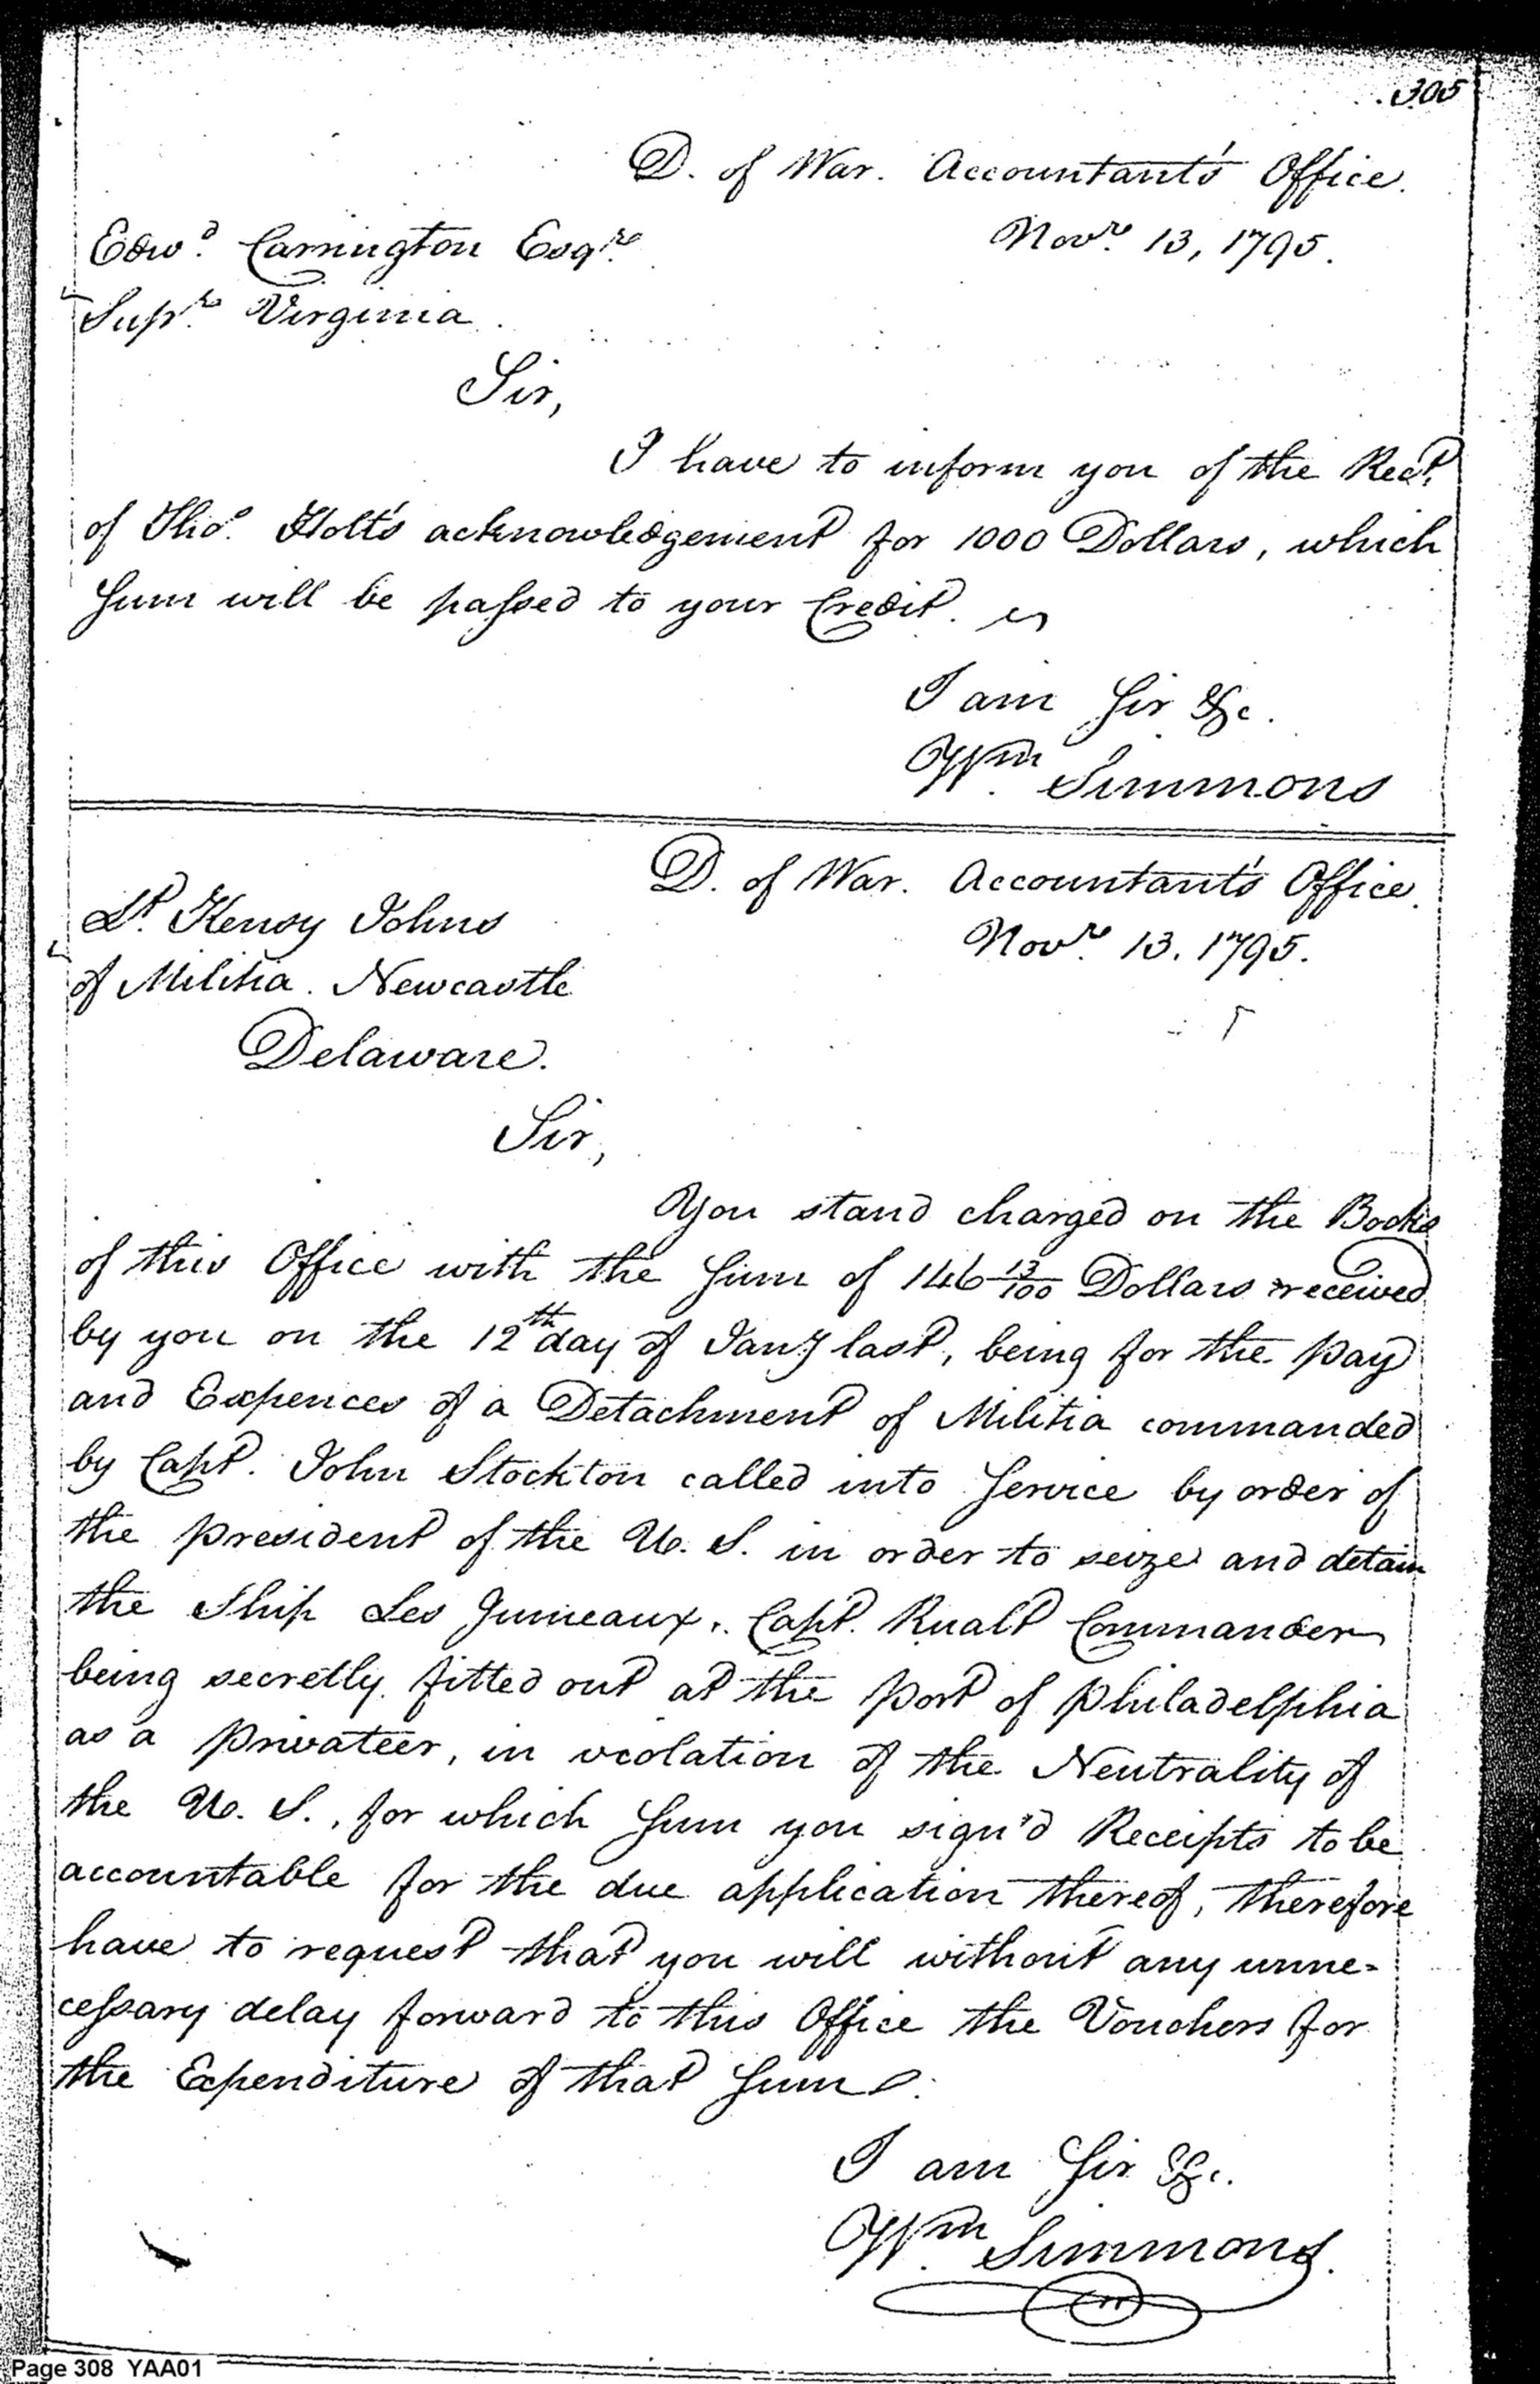 305
D. of War. Accountant's Office.
Edwd. Carrington Esqre.
Novr. 13, 1795.
Supr. Virginia.
Sir,
I have to inform you of the Rect.
of Thos. Holt's acknowledgement for 1000 Dollars, which
Sum will be passed to your Credit.
I am Sir &c.
Wm. Simmons
D. of War. Accountant's Office.
Lt. Henry Johns
Novr. 13. 1795.
of Militia. Newcastle
Delaware.
Sir,
You stand charged on the Books
of this Office with the Sum of 146 13/100 Dollars received
by you on the 12th day of Jany last, being for the pay
and Expences of a Detachment of Militia commanded
by Capt. John Stockton called into Service by order of
the president of the U. S. in order to seize and detain
the Ship Les Jumeaux. Capt. Rualt Commander
being secretly fitted out at the port of philadelphia
as a privateer, in violation of the Neutrality of
the U. S., for which Sum you sign'd Receipts to be
accountable for the due application thereof, therefore
have to request that you will without any unne-
cessary delay forward to this Office the Vouchers for
the Expenditure of that Sum.
I am Sir &c.
Wm. Simmons.
Page 308 YAA01